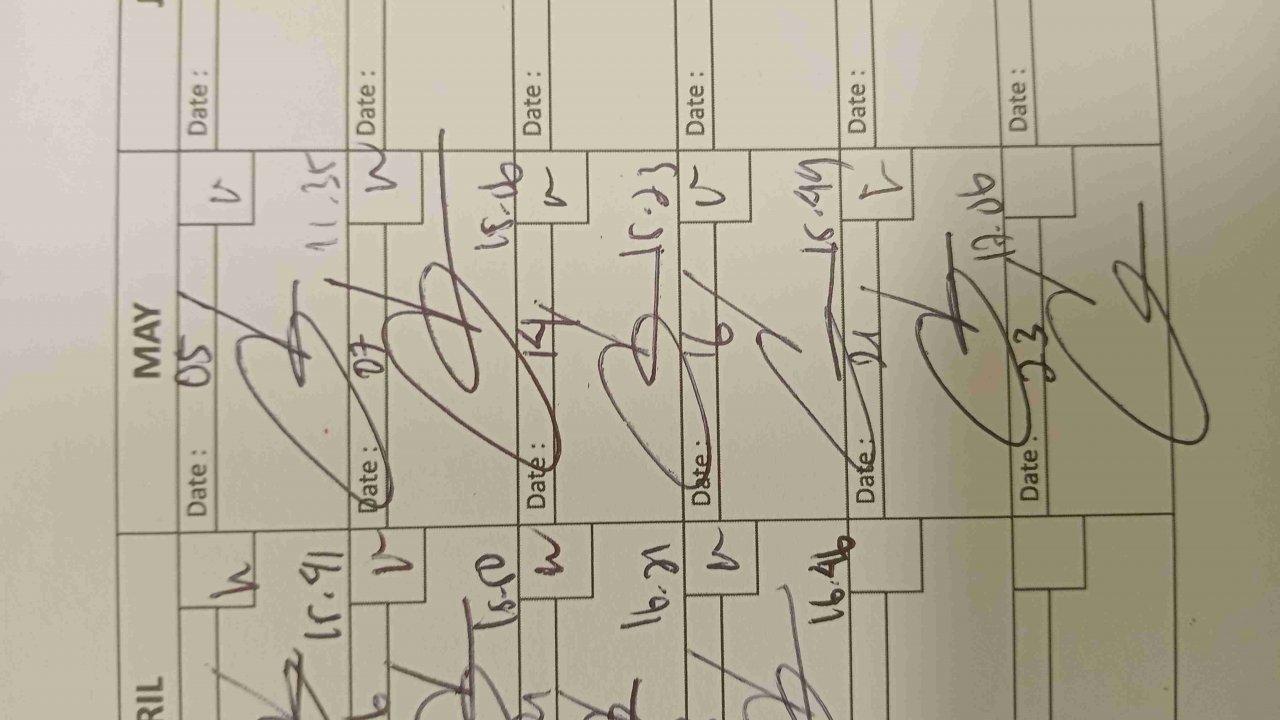 RIL MAY
Date : 05 v Date :
15.41 11.35
v Date : 07 Date :
15.50 15.06
Date : 14 v Date :
16.21 15.23
v Date : 16 v Date :
16.46 15.49
Date : 21 v Date :
17.06
Date : 23 Date :